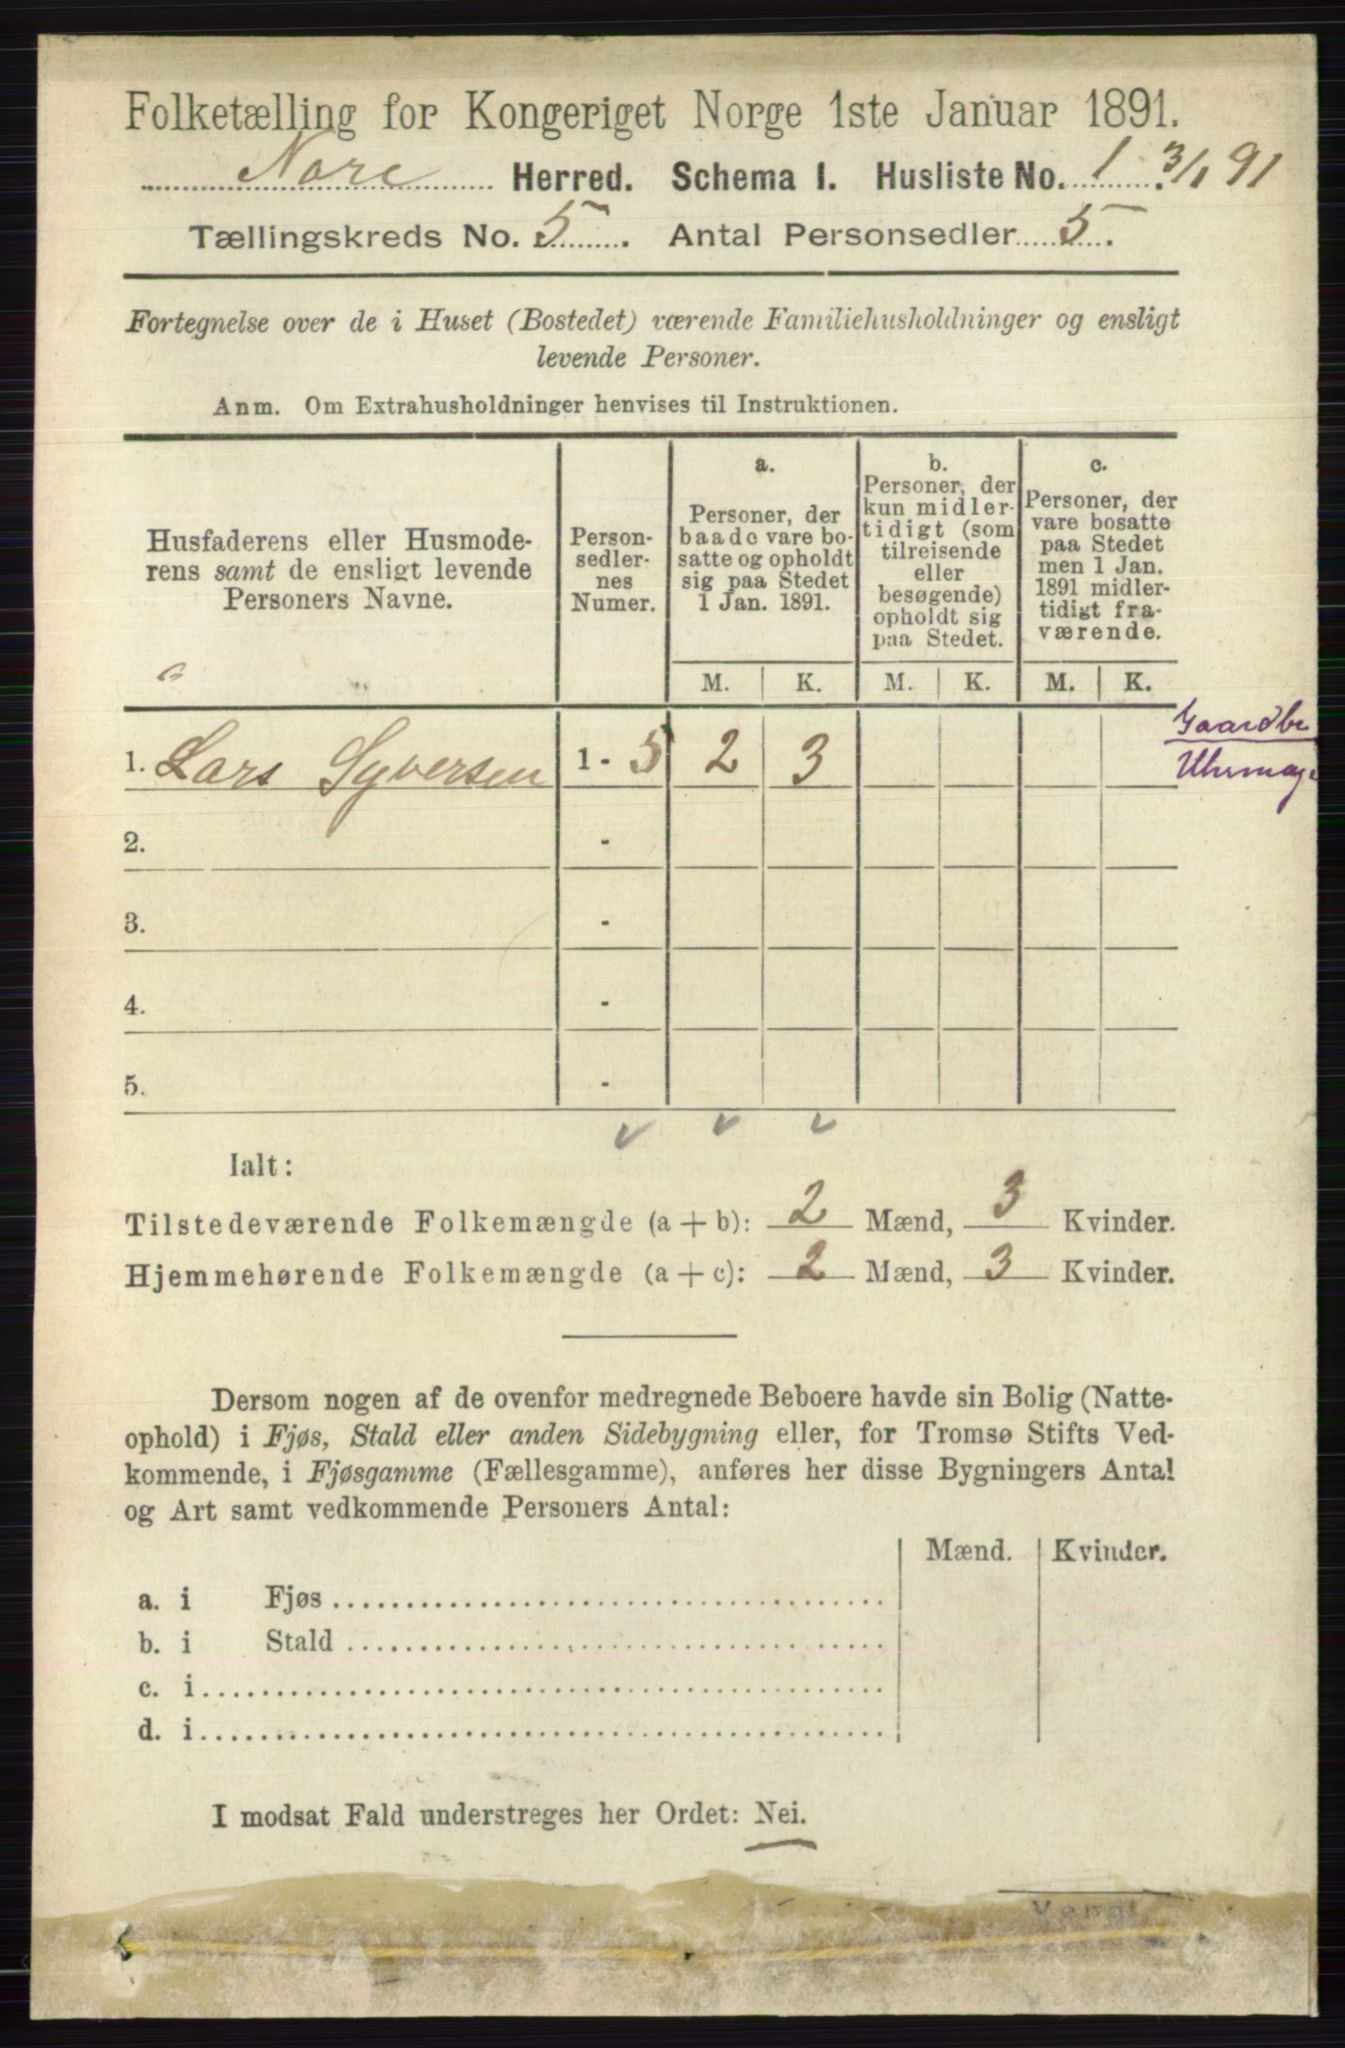 Folketælling for Kongeriget Norge 1ste Januar 1891.
Nore Herred. Schema I. Husliste No. 1. 3/1 91
Tællingskreds No. 5. Antal Personsedler 5.
Fortegnelse over de i Huset (Bostedet) værende Familiehusholdninger og ensligt
levende Personer.
Anm. Om Extrahusholdninger henvises til Instruktionen.
Husfaderens eller Husmode-
rens samt de ensligt levende
Personers Navne.
Person-
sedler-
nes
Numer.
a.
Personer, der
baade vare bo-
satte og opholdt
sig paa Stedet
1 Jan. 1891.
b.
Personer, der
kun midler-
tidigt (som
tilreisende
eller
besøgende)
opholdt sig
paa Stedet.
c.
Personer, der
vare bosatte
paa Stedet
men 1 Jan.
1891 midler-
tidigt fra-
værende.
M. K. M. K. M. K.
1. Lars Syversen 1 - 5 2 3
Gaardbr
Uhrmag
2. -
3. -
4. -
5. -
Ialt:
Tilstedeværende Folkemængde (a + b): 2 Mænd, 3 Kvinder.
Hjemmehørende Folkemængde (a + c): 2 Mænd, 3 Kvinder.
Dersom nogen af de ovenfor medregnede Beboere havde sin Bolig (Natte-
ophold) i Fjøs, Stald eller anden Sidebygning eller, for Tromsø Stifts Ved-
kommende, i Fjøsgamme (Fællesgamme), anføres her disse Bygningers Antal
og Art samt vedkommende Personers Antal:
Mænd. Kvinder.
a. i Fjøs
b. i Stald
c. i
d. i
I modsat Fald understreges her Ordet: Nei.